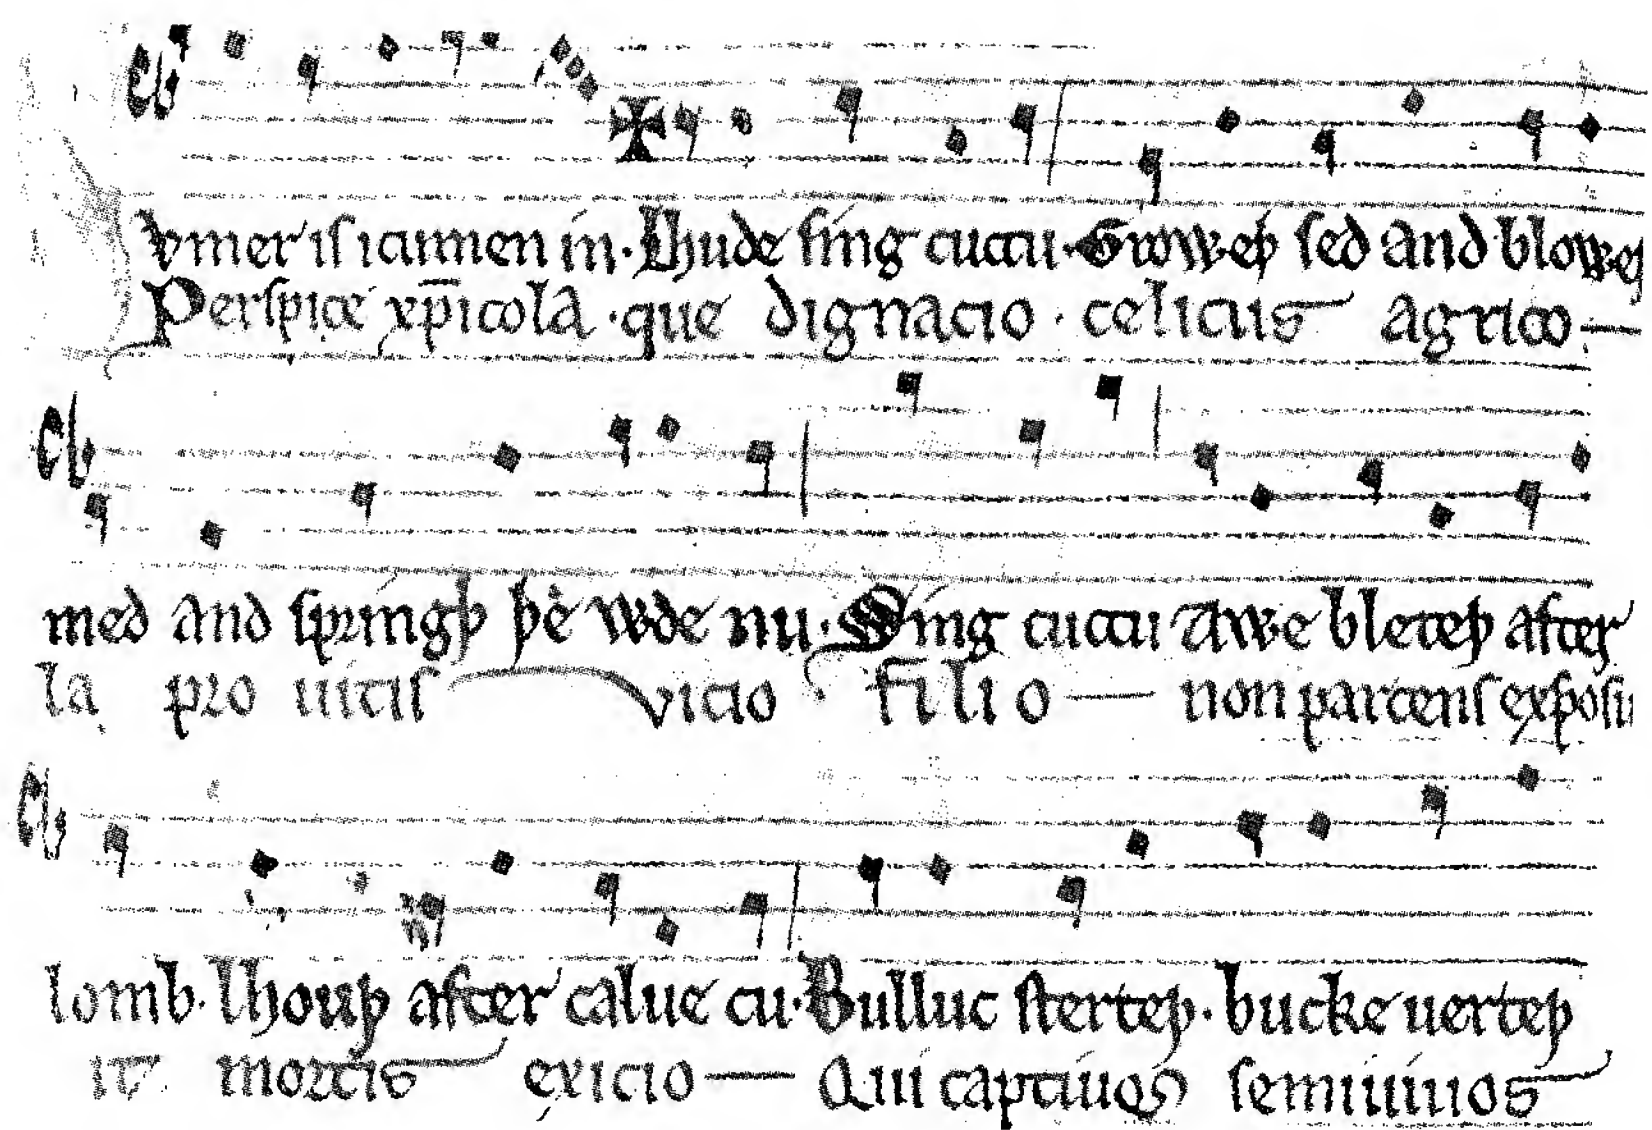 vmer is icumen in. Lhude sing cuccu. Groweþ sed and bloweþ
Perspice xp̅icola. que dignacio. celicus agrico
med and springþ þe wde nu. Sing cuccu Awe bleteþ after
la pro uitis vicio filio non parcens exposu
lomb. lhouþ after calue cu. Bulluc sterteþ. bucke uerteþ
it mortis exicio Qui captiuos semiuiuos